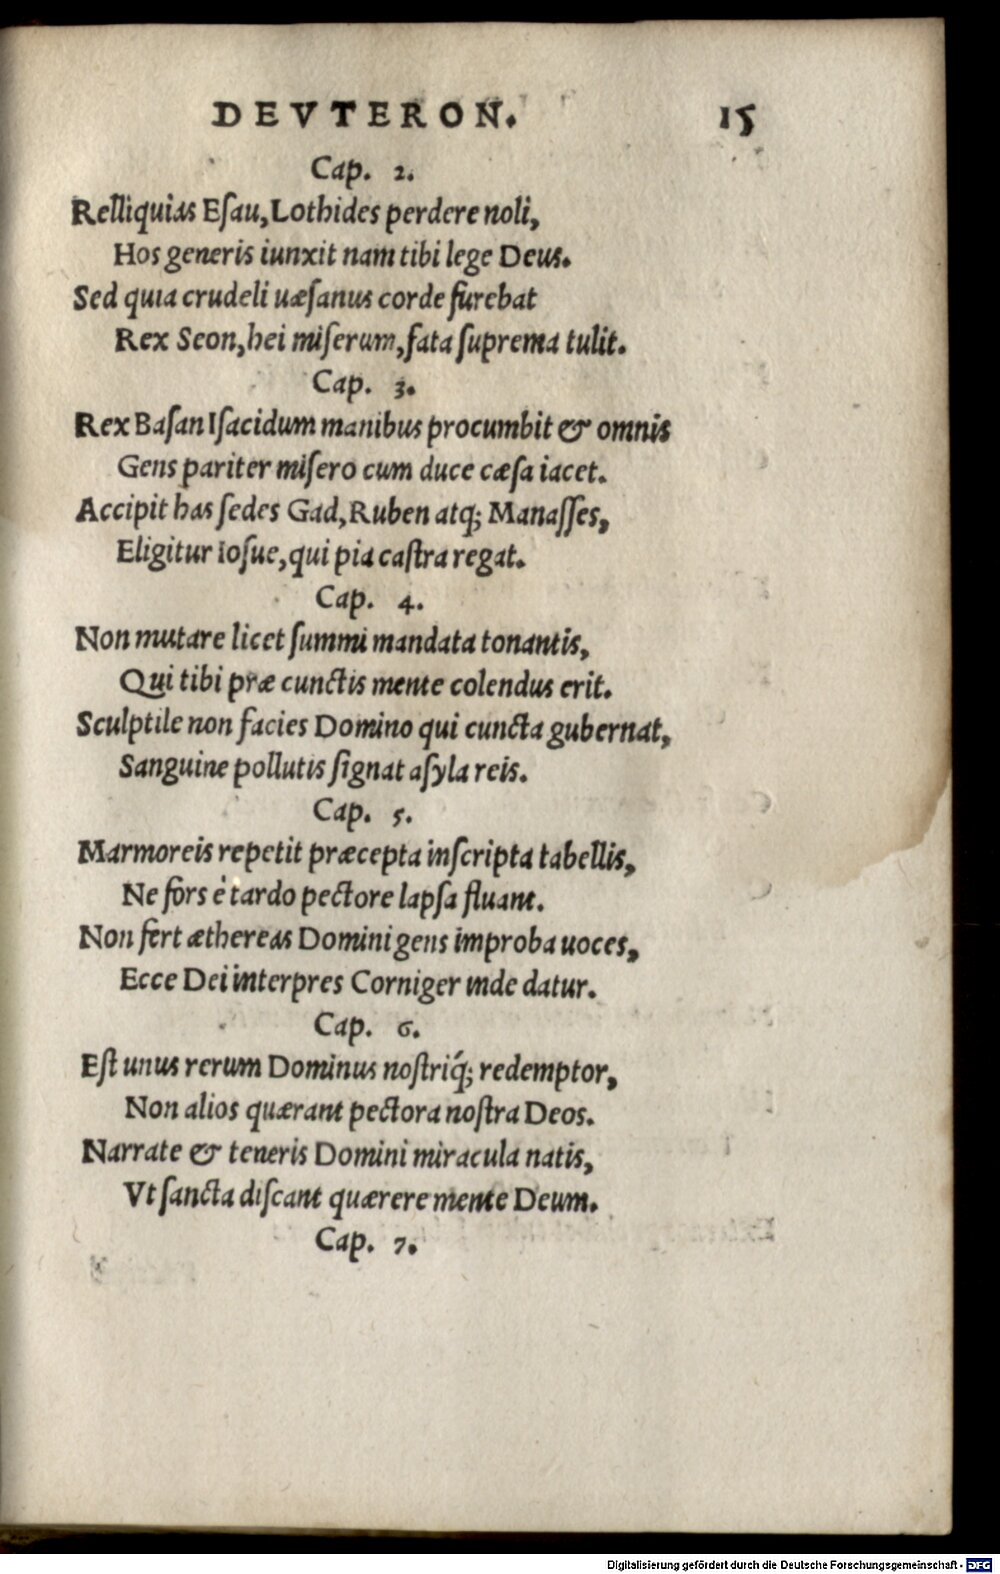 DEVTERON. 15
Cap. 2.
Relliquias Eſau, Lothides perdere noli,
Hos generis iunxit nam tibi lege Deus.
Sed quia crudeli uæſanus corde furebat
Rex Seon, hei miſerum, fata ſuprema tulit.
Cap. 3.
Rex Baſan Iſacidum manibus procumbit & omnis
Gens pariter miſero cum duce cæſa iacet.
Accipit has ſedes Gad, Ruben atq; Manaſſes,
Eligitur Ioſue, qui pia caſtra regat.
Cap. 4.
Non mutare licet ſummi mandata tonantis,
Qui tibi præ cunctis mente colendus erit.
Sculptile non facies Domino qui cuncta gubernat,
Sanguine pollutis ſignat aſyla reis.
Cap. 5.
Marmoreis repetit præcepta inſcripta tabellis,
Ne fors è tardo pectore lapſa fluant.
Non fert æthereas Domini gens improba uoces,
Ecce Dei interpres Corniger inde datur.
Cap. 6.
Eſt unus rerum Dominus noſtriq́; redemptor,
Non alios quærant pectora noſtra Deos.
Narrate & teneris Domini miracula natis,
Vt ſancta diſcant quærere mente Deum.
Cap. 7.
Digitalisierung gefördert durch die Deutsche Forschungsgemeinschaft - DFG